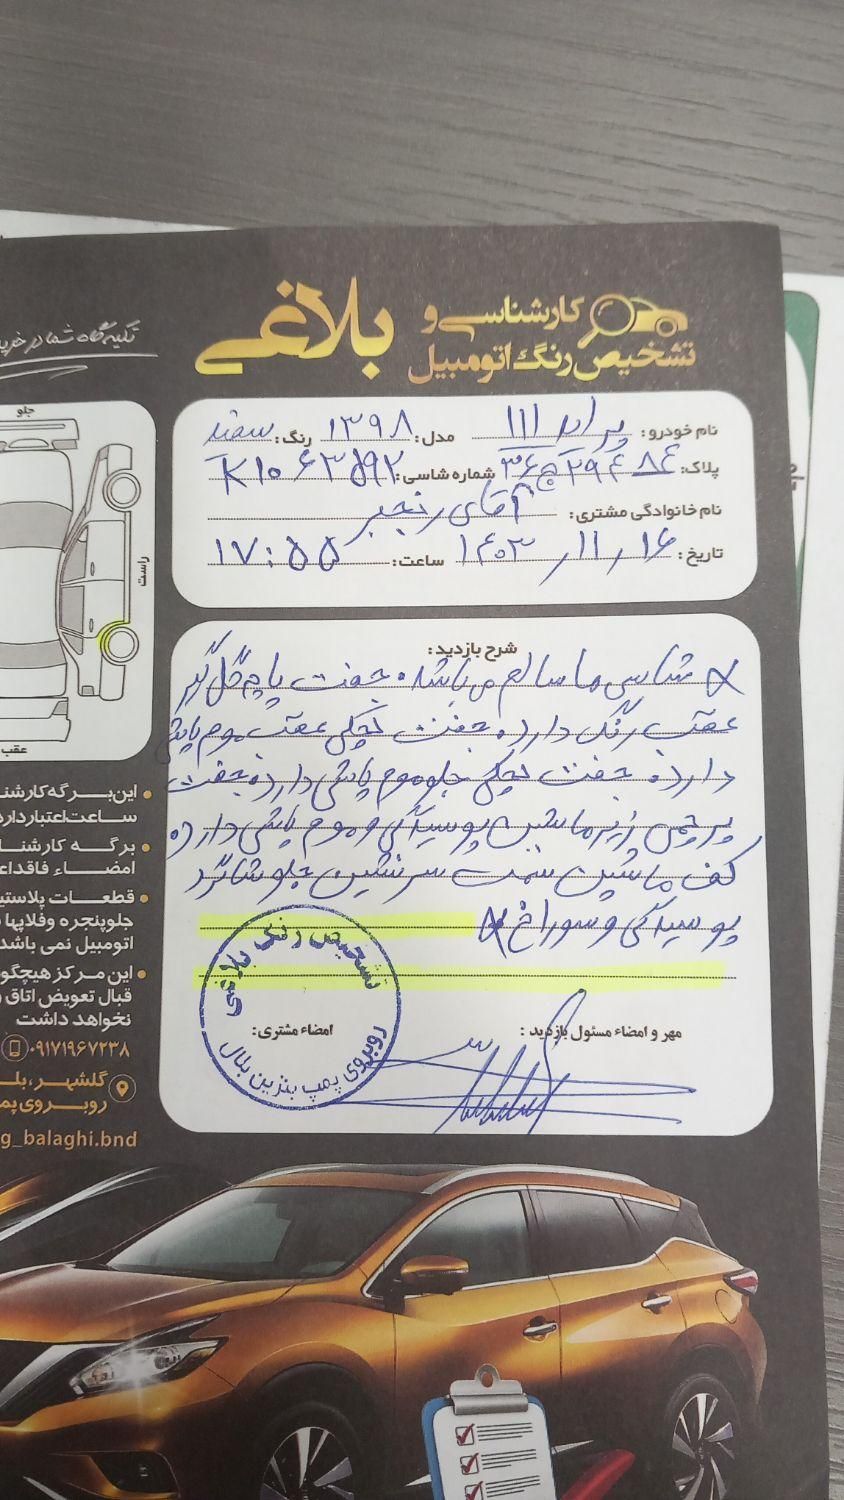 کارشناسی و
تشخیص رنگ اتومبیل
بلاغی
تکیه گاه شما در خرید
نام خودرو: پراید 111 مدل: ۱۳۹۸ رنگ: سفید
پلاک: شماره شاسی: K۱۰۶۳۵۹۲
نام خانوادگی مشتری: آقای رنجبر
تاریخ: ۱۴۰۳/۱۱/۱۶ ساعت: ۱۷:۵۵
جلو
راست
عقب
شرح بازدید:
شاسی ها سالم می باشد. جفت پاچه گلگیر
عقب رنگ دارد. جفت لچکی عقب موم پاشی
دارد. جفت لچکی جلو موم پاشی دارد. جفت
پرچمی زیر ماشین پوسیدگی و موم پاشی دارد.
کف ماشین سمت سرنشین جلو شاگرد
پوسیدگی و سوراخ
مهر و امضاء مسئول بازدید :
امضاء مشتری:
تشخیص رنگ بلاغی
روبروی پمپ بنزین بلال
این برگه کارشنا
ساعت اعتبار دارد
برگه کارشنا
امضاء فاقد اع
قطعات پلاستی
جلوپنجره و فلاپها
اتومبیل نمی باشد
این مرکز هیچگو
قبال تعویض اتاق
نخواهد داشت
۰۹۱۷۱۹۶۷۲۳۸
گلشهر، بلـ
روبروی پم
g_balaghi.bnd